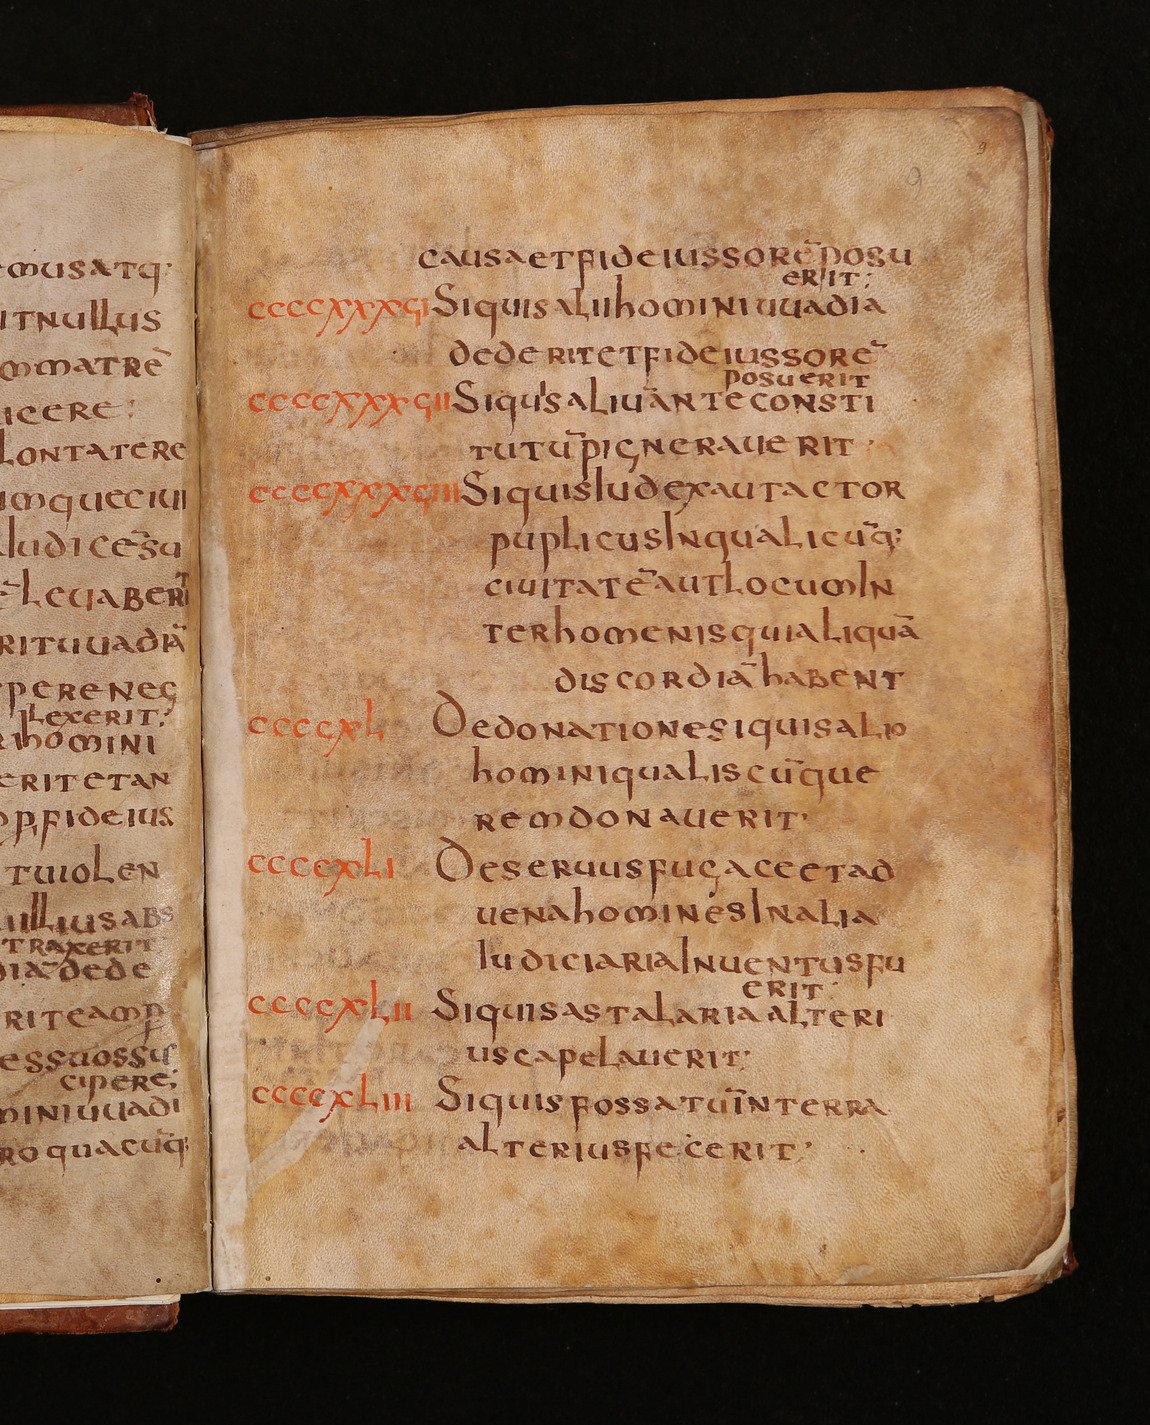 emusatq;
itnullus
mmatrē
licere:
lontatere
umqueciui
Iudicēsu
ēleuaberit
rituuadiā
ꝑpereneg
lexerit;
rihomini
eritetan
oꝑfideius
tuiolen
ulliusabs
traxerit
diādede
riteamp
essuossus
cipere;
miniuuadi
roquacūq;
9
9
causaetfideiussorēposu
erit;
ccccxxxvi Siquisaliihominiuuadia
dederitetfideiussorē
posuerit
ccccxxxvii Siquisaliūantęconsti
tutūpigneraueriṫ
ccccxxxviiii SiquisIudexautactor
puplicusInqualicūq;
ciuitatēautlocumIn
terhomenisquialiquā
discordiāhabent
ccccxl Dedonationesiquisalio
hominiqualiscūque
remdonauerit·
ccccxli Deseruusfugaceetad
uenahominesInalia
IudiciariaInuentusfu
erit·
ccccxlii Siquisastalariaalteri
uscapelauerit;
ccccxliii Siquisfossatūinterra
alteriusfecerit;